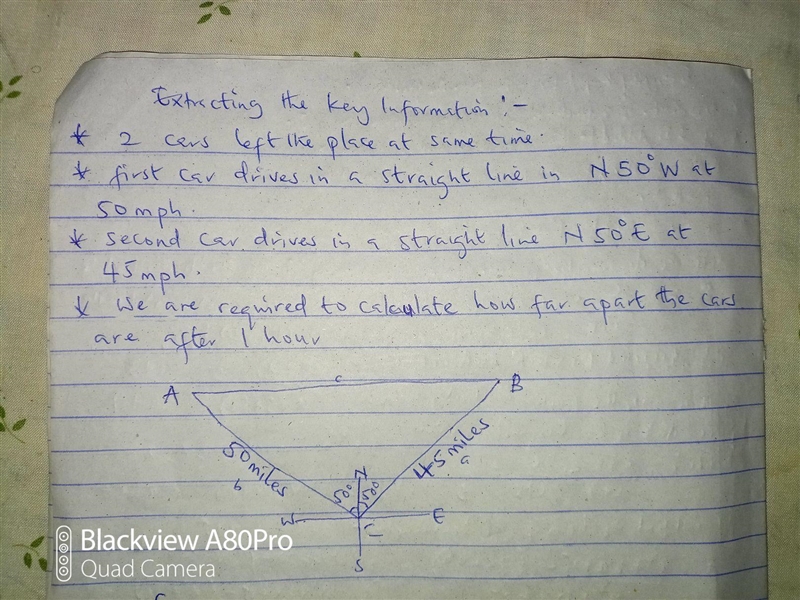 Extracting the Key Information :-
* 2 cars left the place at same time.
* first car drives in a straight line in N50°W at
50mph.
* second car drives in a straight line N50°E at
45mph.
* we are required to calculate how far apart the cars
are after 1 hour
A c B
50 miles 45 miles
b a
N
50° 50°
W E
C
S
Blackview A80Pro
Quad Camera